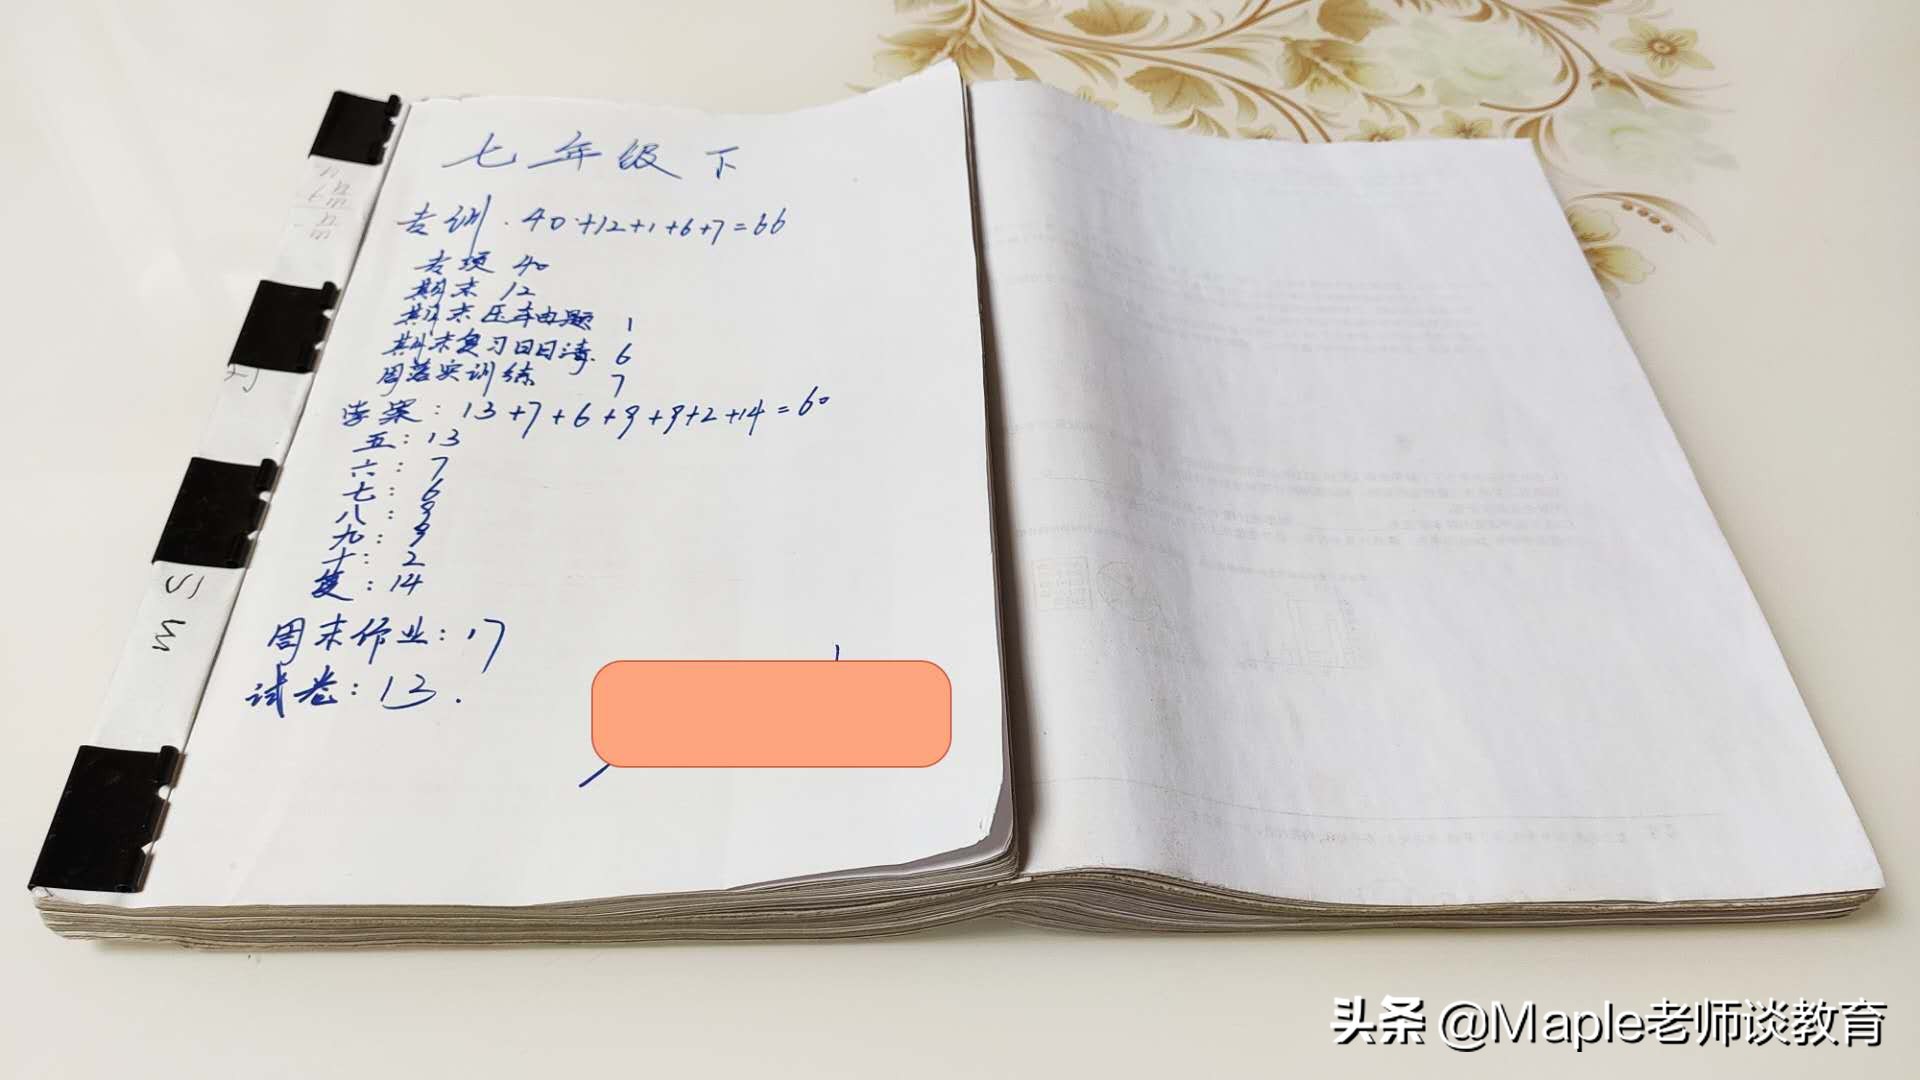 七年级下
专训. 40+12+1+6+7=66
专项 40
期末 12
期末压轴题 1
期末复习日日清. 6
周落实训练 7
学案: 13+7+6+9+9+2+14=60
五: 13
六: 7
七: 6
八: 9
九: 9
十: 2
复: 14
周末作业: 17
试卷: 13.
头条 @Maple老师谈教育